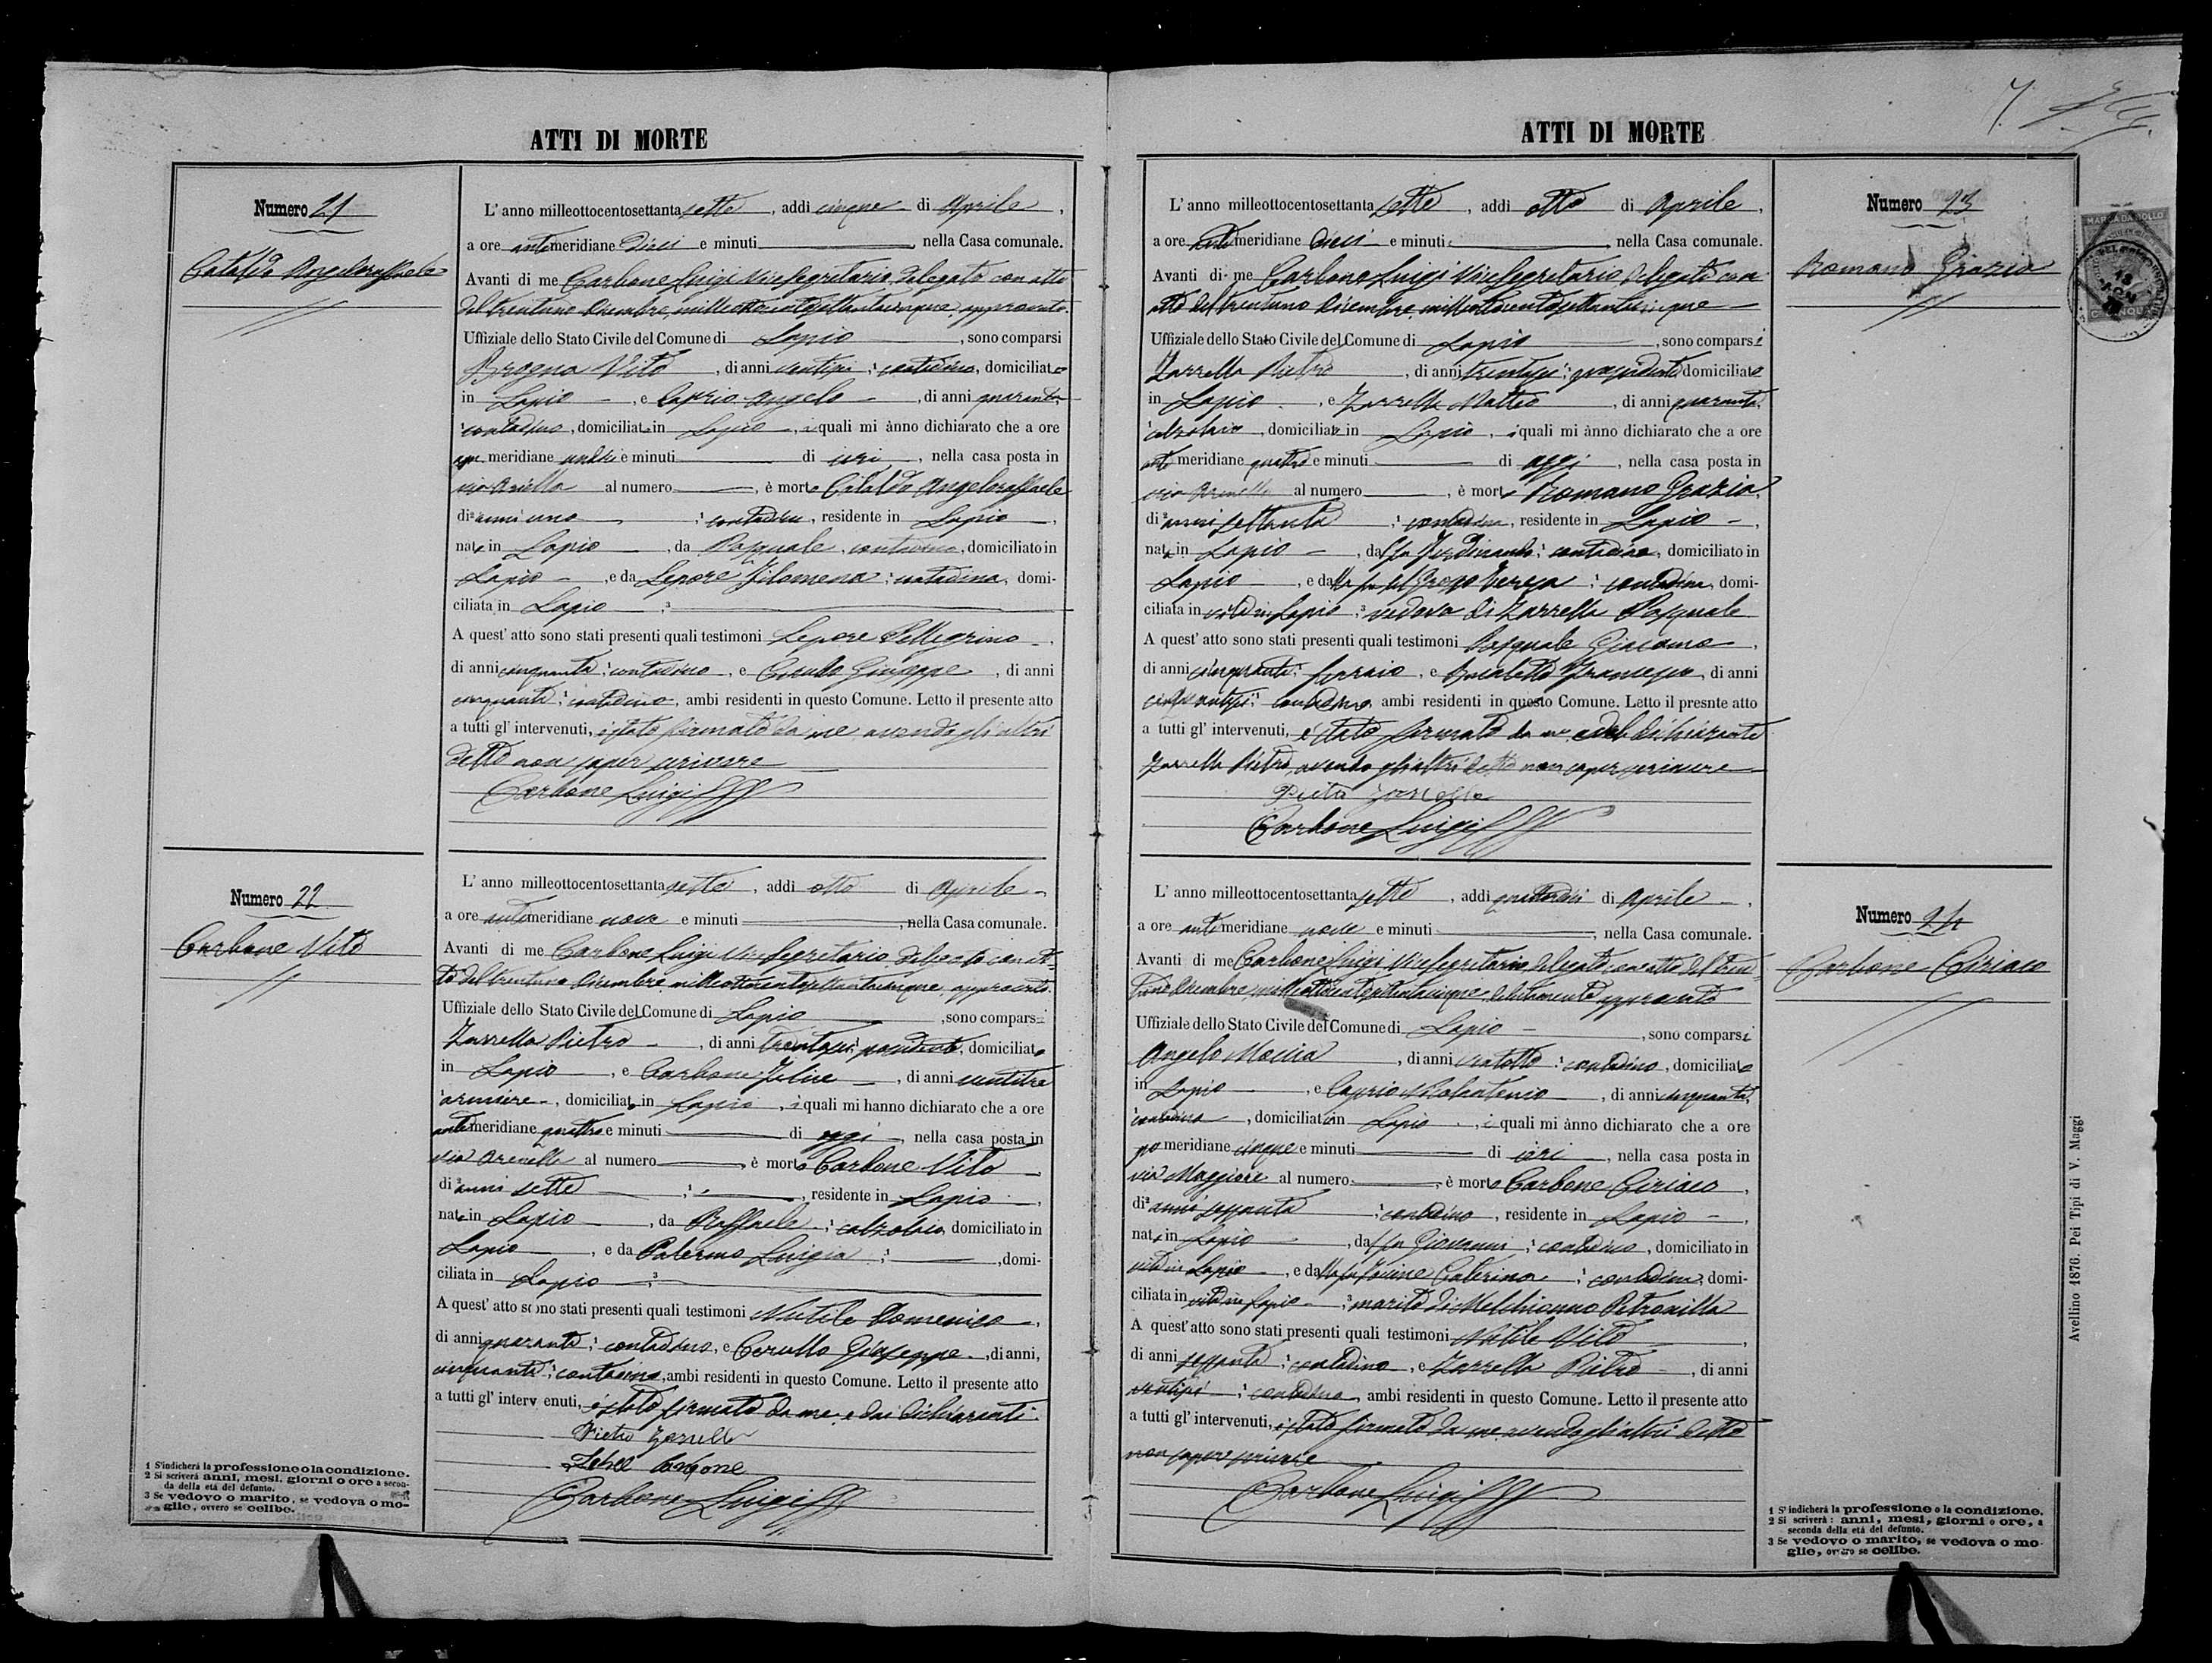 ATTI DI MORTE
Numero 21
Cataldo Angeloraffaele
L' anno milleottocentosettanta sette, addì cinque di Aprile,
a ore antimeridiane dieci e minuti, nella Casa comunale.
Avanti di me Carbone Luigi Vice Segretario delegato con atto
del trentuno Dicembre milleottocentosettantacinque approvato
Uffiziale dello Stato Civile del Comune di Lapio, sono comparsi
Brogna Vito, di anni ventisei, contadino, domiciliato
in Lapio, e Caprio Angelo, di anni quaranta,
contadino, domiciliato in Lapio, i quali mi ànno dichiarato che a ore
meridiane undici e minuti di ieri, nella casa posta in
via al numero, è morto Cataldo Angeloraffaele
di anni uno, residente in Lapio,
nato in Lapio, da Pasquale, contadino, domiciliato in
Lapio, e da Lepore Filomena, contadina, domi-
ciliata in Lapio, 3
A quest' atto sono stati presenti quali testimoni Lepore Pellegrino,
di anni cinquanta, contadino, e Cerullo Giuseppe, di anni
cinquanta, contadino, ambi residenti in questo Comune. Letto il presente atto
a tutti gl' intervenuti, è stato firmato da me avendo gli altri
detto non saper scrivere
Carbone Luigi
Numero 22
Carbone Vito
L' anno milleottocentosettanta sette, addì otto di Aprile
a ore antimeridiane nove e minuti, nella Casa comunale.
Avanti di me Carbone Luigi Vice Segretario delegato con at-
to del trentuno Dicembre milleottocentosettantacinque approvato
Uffiziale dello Stato Civile del Comune di Lapio, sono comparsi
Zarrella Pietro, di anni trentasei, possidente, domiciliato
in Lapio, e Carbone Felice, di anni ventitre
armiere, domiciliato in Lapio, i quali mi hanno dichiarato che a ore
antimeridiane quattro e minuti di oggi, nella casa posta in
via Arenelle al numero, è morto Carbone Vito
di anni sette, residente in Lapio,
nato in Lapio, da Raffaele, calzolaio, domiciliato in
Lapio, e da Palermo Luigia, domi-
ciliata in Lapio 3
A quest' atto sono stati presenti quali testimoni Nutile Domenico,
di anni quaranta, contadino, e Cerullo Giuseppe, di anni,
cinquanta, contadino, ambi residenti in questo Comune. Letto il presente atto
a tutti gl' interv enuti, è stato firmato da me e dai dichiaranti
Pietro Zarrella
Carbone Luigi
1 S'indicherà la professione o la condizione.
2 Si scriverà anni, mesi, giorni o ore a secon-
da della età del defunto.
3 Se vedovo o marito, se vedova o mo-
glie, ovvero se celibe.
ATTI DI MORTE
7.
Numero 23
Romano Grazia
MARCA DA BOLLO
L' anno milleottocentosettanta sette, addì otto di Aprile,
a ore antimeridiane dieci e minuti nella Casa comunale.
Avanti di me Carbone Luigi Vice Segretario delegato con
atto del trentuno Dicembre milleottocentosettantacinque
Uffiziale dello Stato Civile del Comune di Lapio, sono comparsi
Zarrella Pietro, di anni trentasei, possidente domiciliato
in Lapio, e Zarrella Matteo, di anni quaranta,
calzolaio, domiciliato in Lapio, i quali mi ànno dichiarato che a ore
antimeridiane quattro e minuti di oggi, nella casa posta in
via al numero, è morta Romano Grazia,
di anni settanta, contadina, residente in Lapio,
nata in Lapio, dal fu Ferdinando, contadino, domiciliato in
Lapio, e dalla fu del Grosso Teresa, contadina, domi-
ciliata in vita in Lapio, 3 vedova di Zarrella Pasquale
A quest' atto sono stati presenti quali testimoni Pasquale Giacomo,
di anni cinquanta, ferraio, e Francesco, di anni
contadino, ambi residenti in questo Comune. Letto il presnte atto
a tutti gl' intervenuti, è stato firmato da me e dal dichiarante
Zarrella Pietro, avendo gli altri detto non saper scrivere
Carbone Luigi
Numero 24
Carbone Ciriaco
L' anno milleottocentosettanta sette, addì quattordici di Aprile,
a ore antimeridiane nove e minuti, nella Casa comunale.
Avanti di me Carbone Luigi Vice Segretario delegato con atto del tren-
tuno Dicembre milleottocentosettantacinque debitamente approvato
Uffiziale dello Stato Civile del Comune di Lapio, sono comparsi
Angelo, di anni contadino, domiciliato
in Lapio, e Caprio Nicolantonio, di anni cinquanta,
contadino, domiciliato in Lapio, i quali mi ànno dichiarato che a ore
pomeridiane cinque e minuti di ieri, nella casa posta in
via Maggiore al numero, è morto Carbone Ciriaco,
di anni sessanta, contadino, residente in Lapio,
nato in Lapio, dal fu Giovanni, contadino, domiciliato in
vita in Lapio, e dalla fu Iovine Caterina, contadina, domi-
ciliata in vita in Lapio, 3 marito di Melchionno Petronilla
A quest' atto sono stati presenti quali testimoni Nutile Vito,
di anni sessanta, contadino, e Zarrella Pietro, di anni
ventisei, contadino, ambi residenti in questo Comune. Letto il presente atto
a tutti gl' intervenuti, è stato firmato da me avendo gli altri detto
non sapere scrivere
Carbone Luigi
1 S' indicherà la professione o la condizione.
2 Si scriverà: anni, mesi, giorni o ore, a
seconda della età del defunto.
3 Se vedovo o marito, se vedova o mo-
glie, ovvero se celibe.
Avellino 1876. Pei Tipi di V. Maggi